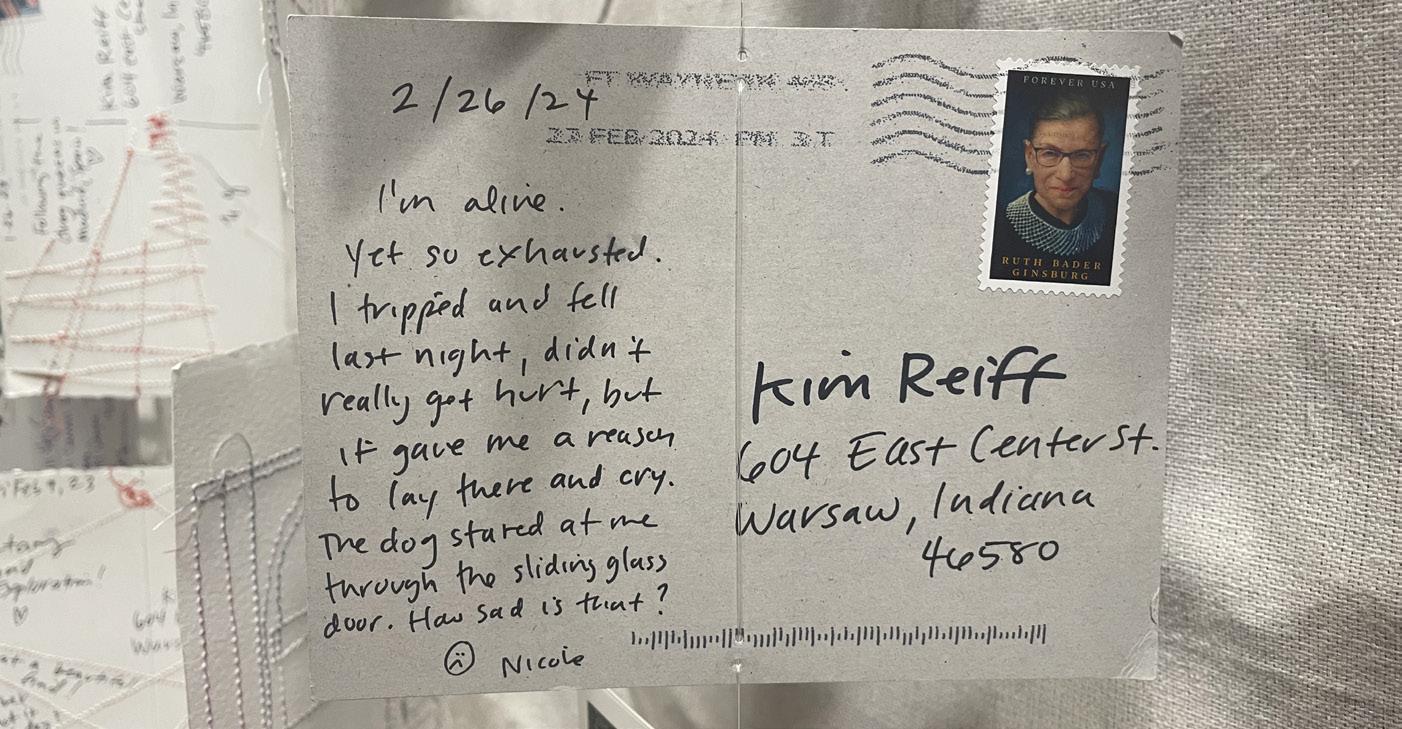 2/26/24
FT WAYNE IN 468
FEB 2024 PM 3 T
I'm alive.
Yet so exhausted.
I tripped and fell
last night, didn't
really get hurt, but
it gave me a reason
to lay there and cry.
The dog stared at me
through the sliding glass
door. How sad is that?
Nicole
FOREVER USA
RUTH BADER
GINSBURG
Kim Reiff
604 East Center St.
Warsaw, Indiana
46580
Kim Reiff
604 East Ce
Warsaw, In
4658
Following the
Feb 9, 23
and
604